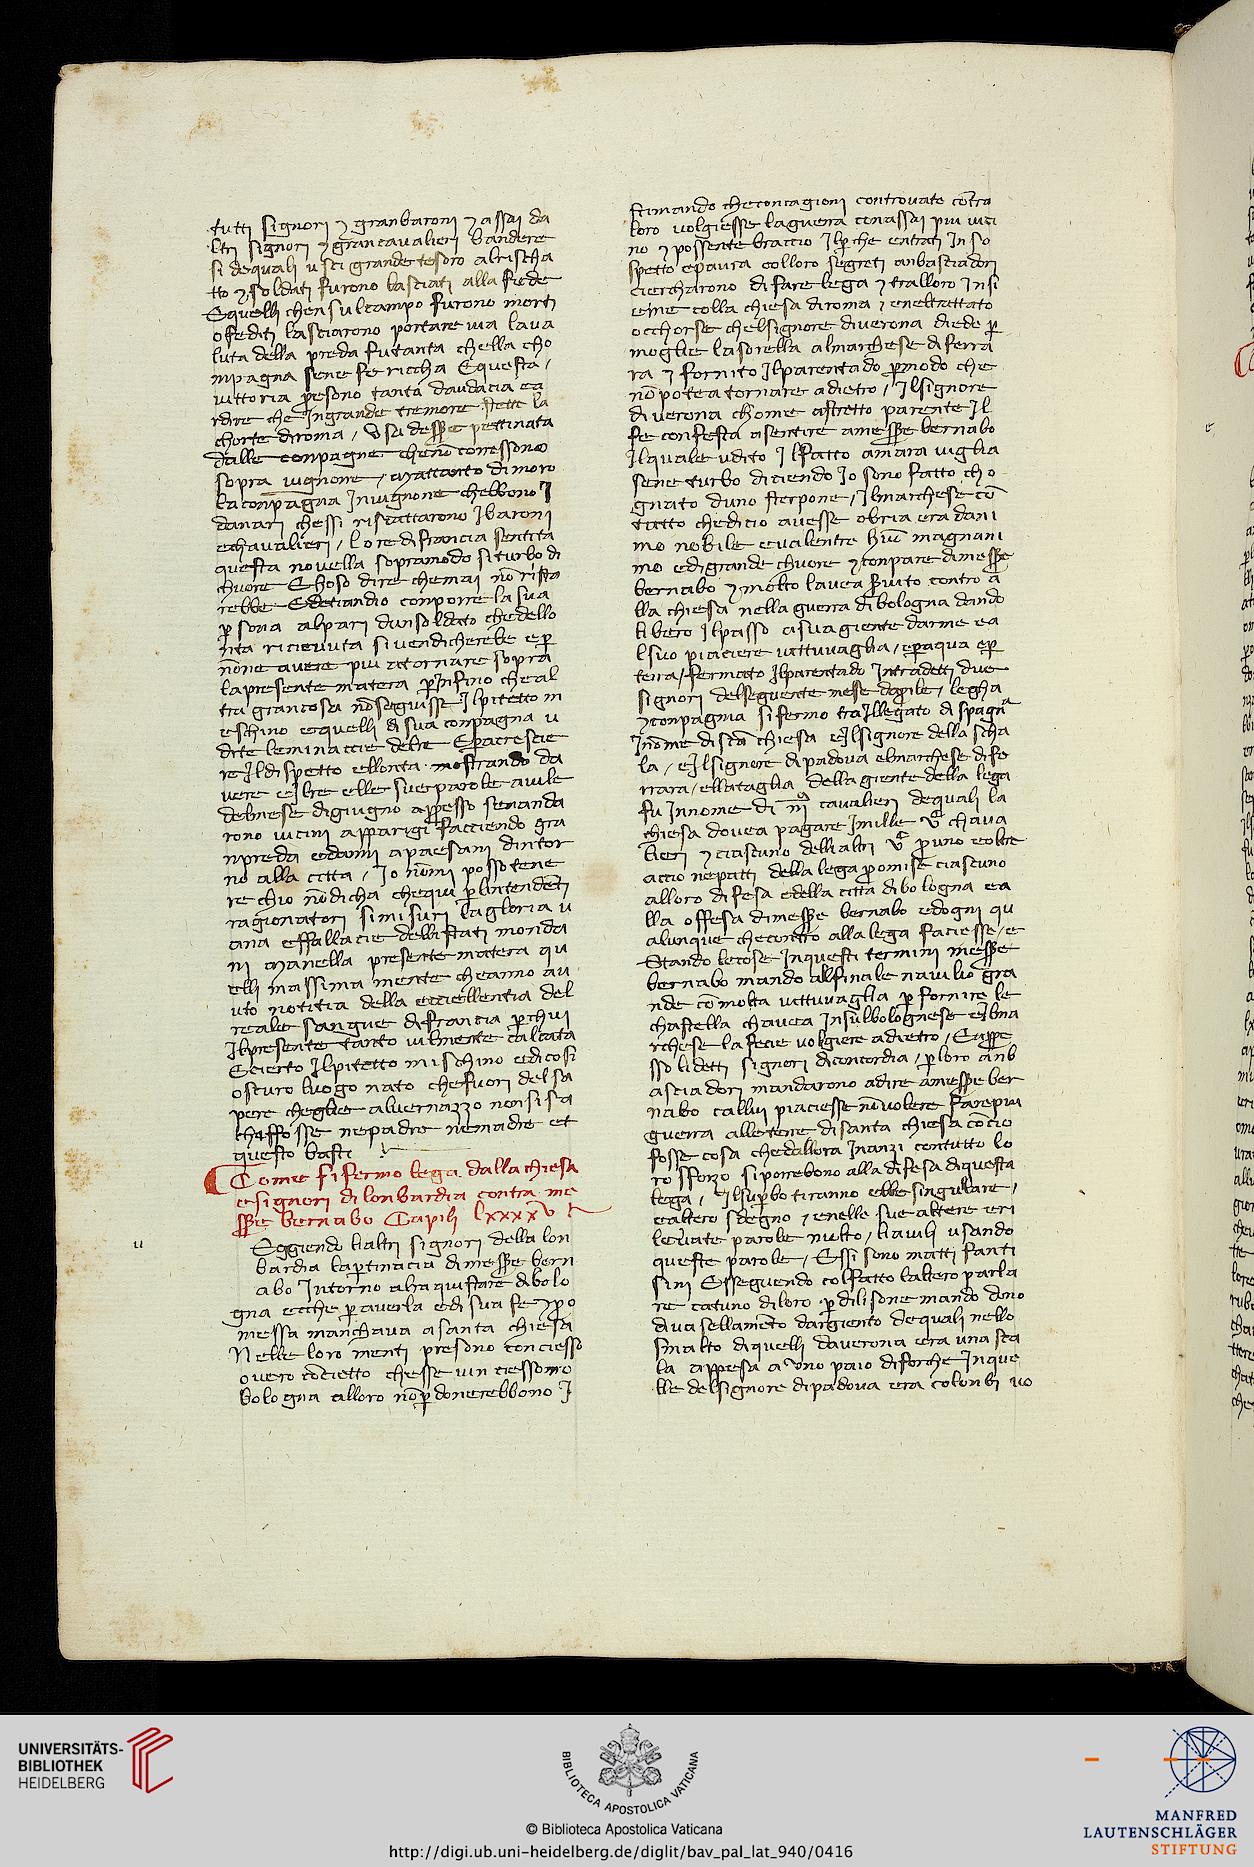 tutti signori ⁊ granbaroni ⁊ assai da
ltri signori ⁊ grancavalieri bandere
si dequali usci grande tesoro alrischa
tto ⁊ soldati furono lasciati alla fede
Equelli chensulcampo furono morti
o fediti lasciarono portare via lava
luta della preda fu tanta chella cho
mpagna sene fe riccha Equesta /
vittoria presono tanta daudacia ea
rdire che Ingrande tremore stette la
chorte diroma /
dalle conpagne chenō corressono
sopra vignone / Mattanto dimoro
la conpagna Invignone chebbono I
danari chessi riscattarono Ibaroni
echavalieri / lo re difrancia sentita
questa novella sopramodo siturbo di
chuore Ehoso dire chemai nō rista
rebbe Edeciandio conporre la sua
ꝑsona alpari dunsoldato chedello
nta ricievuta si vendicherebe e ꝑ
nōne avere piu attornare sopra
lapresente matera ꝑInfino che al
tra grancosa nō seguisse Ilpitetto m
eschino equelli di sua conpagna u
dite leminaccie delre Eꝑacrescie
re Il dispetto ellonta mostrando da
vere eIlre elle sue parole avile
delmese digiugno apresso senanda
rono vicini apparigi facciendo gra
npreda edanni apaesani dintor
no alla citta / Io nōmi posso tene
re chio nō dicha chequi ꝑlintendēti
ragionatori simisuri lagloria v
ana effallacie delli stati monda
ni Manella presente matera qu
elli massima mente cheanno av
uto notitia della eccellentia del
reale sangue difrancia ꝑchui
Ilpresente tanto vilmente calcata
Ecierto Ilpitetto mischino edicosi
oscuro luogo nato chefuori delsa
pere cheglie alvernazzo nonsi sa
chiffosse nepadre nemadre et
questo basti
Come si fermo lega dalla chiesa
esignori di lonbardia contra me
sser bernabo Capilo lxxxxv
Eggiendo lialtri signori della lon
bardia laptinacia dimesser bern
abo Intorno alraquistare dibolo
gna ecche ꝑ averla edi sua fe ⁊ ꝓo
messa manchava asanta chiesa
Nelle loro menti presono conciesso
overo cōcietto chesse vinciessono
bologna alloro nō ꝑdonerebbono I
stimando checoncagioni controvate cōtra
loro volgiesse laguerra conassai piu vici
no ⁊ possente braccio Ilꝑche entrati In so
spetto epaura colloro segreti anbasciadori
ciercharono di fare lega ⁊ tralloro Insi
eme colla chiesa diroma ⁊ eneltrattato
occhorse chelsignore diverona diede ꝑ
moglie la sorella almarchese di ferra
ra ⁊ fornito Ilparentado ꝑmodo che
nō potea tornare adietro / Ilsignore
diverona chome astretto parente Il
fe confesta asentire amesser bernabo
Ilquale udito Ilfatto amara viglia
sene turbo diciendo Io sono fatto cho
gnato duno sterpone / Ilmarchese cō
tutto chedicio avesse obria era dani
mo nobile evalentre hūē magnani
mo edigrande chuore ⁊ conpare dimesser
bernabo ⁊ molto lavea servito contro a
lla chiesa nella guerra dibologna dando
libero Ilpasso asuagiente darme ea
lsuo piaciere vittuvaglia / eꝑaqua eꝑ
terra / fermato Ilparentado Intradetti due
signori delseguente mese daprile / legha
⁊ conpagnia si fermo traIllegato di spagna
Inōme di sctā chiesa eIlsignore della scha
la / eIlsignore dipadova elmarchese dife
rrara / ellataglia della giente della lega
fu Innome di cavalieri dequali la
chiesa dovea pagare Imille chava
lieri ⁊ ciascuno dellialtri ꝑuno eoltre
accio nepatti della lega ꝓmise ciascuno
alloro difesa edella citta dibologna ea
lla offesa dimesser bernabo edogni qu
alunque checontro alla lega faciesse / e
Stando lecose Inquesti termini messer
bernabo mando alfinale navilio gra
nde cō molta vittuvaglia ꝑ fornire le
chastella chavea Insulbolognese eIlma
rchese la fecie volgiere adietro / Eapre
sso lidetti signori diconcordia / ꝑ loro anb
asciadori mandarono adire amesser ber
nabo callui piaciesse nō volere fare piu
guerra alleterre di santa chiesa cōcio
fosse cosa chedallora Inanzi contutto lo
ro sforzo siporrebono alla difesa diquesta
lega / Ilsuꝑbo tiranno ebbe singulare /
ealtero sdegno ⁊ enelle sue altere eri
levate parole molto / liavili usando
queste parole / Essi sono matti fanti
sini Esseguendo colfatto laltero parla
re catuno diloro ꝑ dilisone mando dono
diva sellamēto dargiento dequali nello
smalto diquelli daverona era una sca
la appesa a Uno paio diforche Inque
lle delsignore dipadova era colonbi vo
UNIVERSITÄTS-
BIBLIOTHEK
HEIDELBERG
BIBLIOTECA APOSTOLICA VATICANA
© Biblioteca Apostolica Vaticana
http://digi.ub.uni-heidelberg.de/diglit/bav_pal_lat_940/0416
MANFRED
LAUTENSCHLÄGER
STIFTUNG